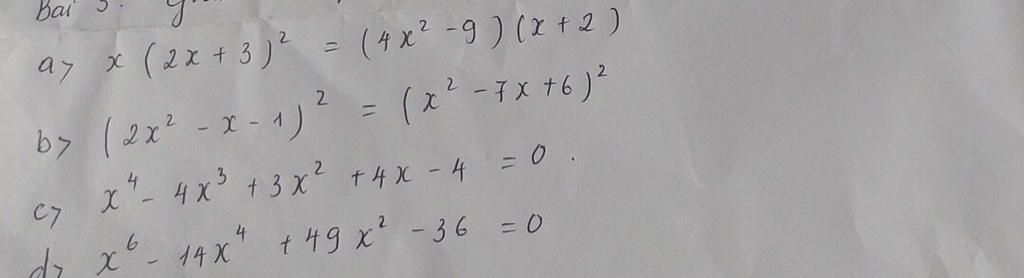 Bai 3.
a> x(2x + 3)² = (4x² - 9)(x + 2)
b> (2x² - x - 1)² = (x² - 7x + 6)²
c> x⁴ - 4x³ + 3x² + 4x - 4 = 0.
d> x⁶ - 14x⁴ + 49x² - 36 = 0